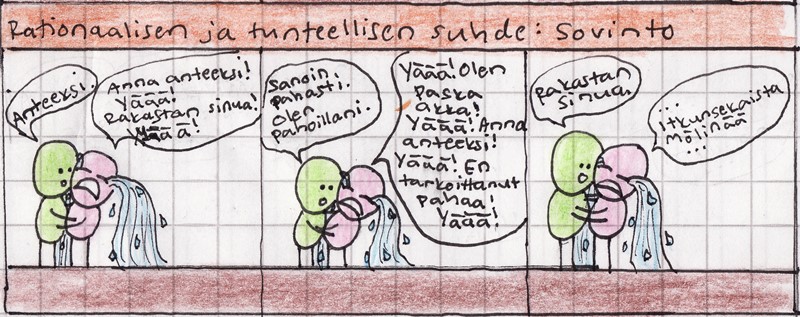 Rationaalisen ja tunteellisen suhde: Sovinto
Anteeksi.
Anna anteeksi!
Yäää!
Rakastan sinua!
Yäää!
Sanoin
pahasti.
Olen
pahoillani.
Yäää! Olen
paska
akka!
Yäää! Anna
anteeksi!
Yäää! En
tarkoittanut
pahaa!
Yäää!
Rakastan
sinua.
...
Itkunsekaista
mölinää
...